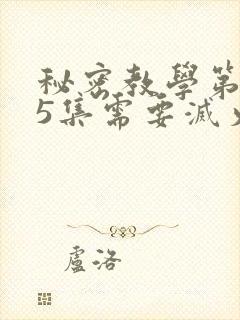 秘密教學第
5集需要滅
盧洛